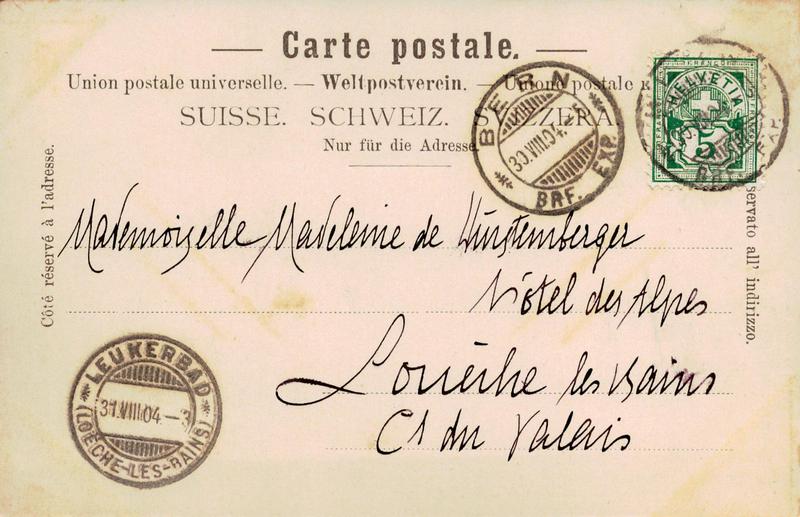 Carte postale.
Union postale universelle. — Weltpostverein. — Unione postale
SUISSE. SCHWEIZ. SVIZZERA
Nur für die Adresse
Côté réservé à l'adresse.
servato all' indirizzo.
BERN
30.VIII.04.
BRF. EXP.
HELVETIA
5
Mademoiselle Madeleine de Wurstemberger
Hôtel des Alpes
Louèche les Bains
Ct du Valais
LEUKERBAD
31.VIII.04.-3
(LOÈCHE-LES-BAINS)